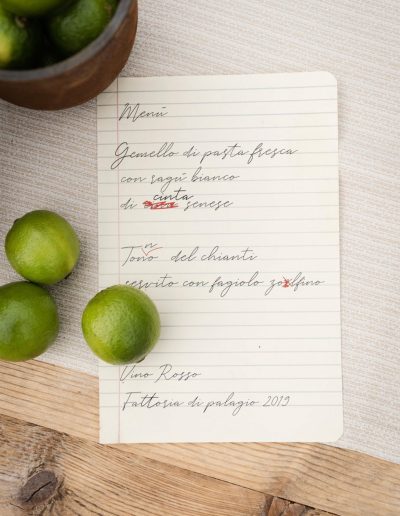 Menù
Gemello di pasta fresca
con ragù bianco
di cinta senese
Tonno del chianti
servito con fagiolo zolfino
Vino Rosso
Fattoria di palagio 2019